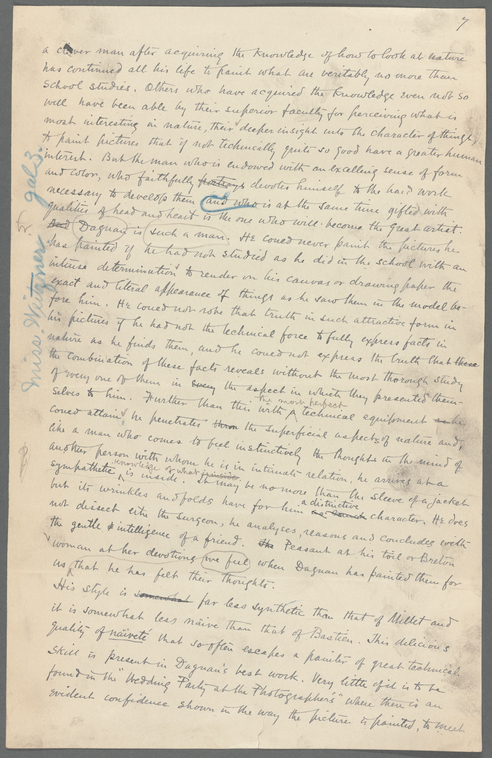 7
a clever man after acquiring the knowledge of how to look at nature
has continued all his life to paint what are veritably no more than
school studies. Others who have acquired the knowledge even not so
well have been able by their superior faculty for perceiving what is
most interesting in nature, their deeper insight into the character of things,
to paint pictures that if not technically quite so good have a greater human
interest. But the man who is endowed with an excelling sense of form
and color, who faithfully portrays devotes himself to the hard work
necessary to develop them and who is at the same time gifted with
qualities of head and heart is the one who will become the great artist.
And Dagnan is such a man. He could never paint the pictures he
has painted if he had not studied as he did in the school with an
intense determination to render on his canvas or drawing paper the
exact and literal appearance of things as he saw them in the model be-
fore him. He could not robe that truth in such attractive form in
his pictures if he had not the technical force to fully express facts in
nature as he finds them, and he could not express the truth that these
the combination of these facts reveals without the most thorough study
of every one of them in every the aspect in which they presented them-
selves to him. Further than this with the most perfect technical equipment
could attain, he penetrates the superficial aspects of nature and,
like a man who comes to feel instinctively the thoughts in the mind of
another person with whom he is in intimate relation, he arrives at a
sympathetic knowledge of what is inside. It may be no more than the sleeve of a jacket
but its wrinkles and folds have for him a distinctive character. He does
not dissect like the surgeon, he analyses, reasons and concludes with
the gentle & intelligence of a friend. The Peasant at his toil or Breton
woman at her devotions we feel when Dagnan has painted them for
us that he has felt their thoughts.
His style is somewhat far less synthetic than that of Millet and
it is somewhat less naïve than that of Bastien. This delicious
quality of naïveté that so often escapes a painter of great technical
skill is present in Dagnan's best work. Very little of it is to be
found in the "Wedding Party at the Photographer's" where there is an
evident confidence shown in the way the picture is painted, to meet
Miss Witzner gal 3.